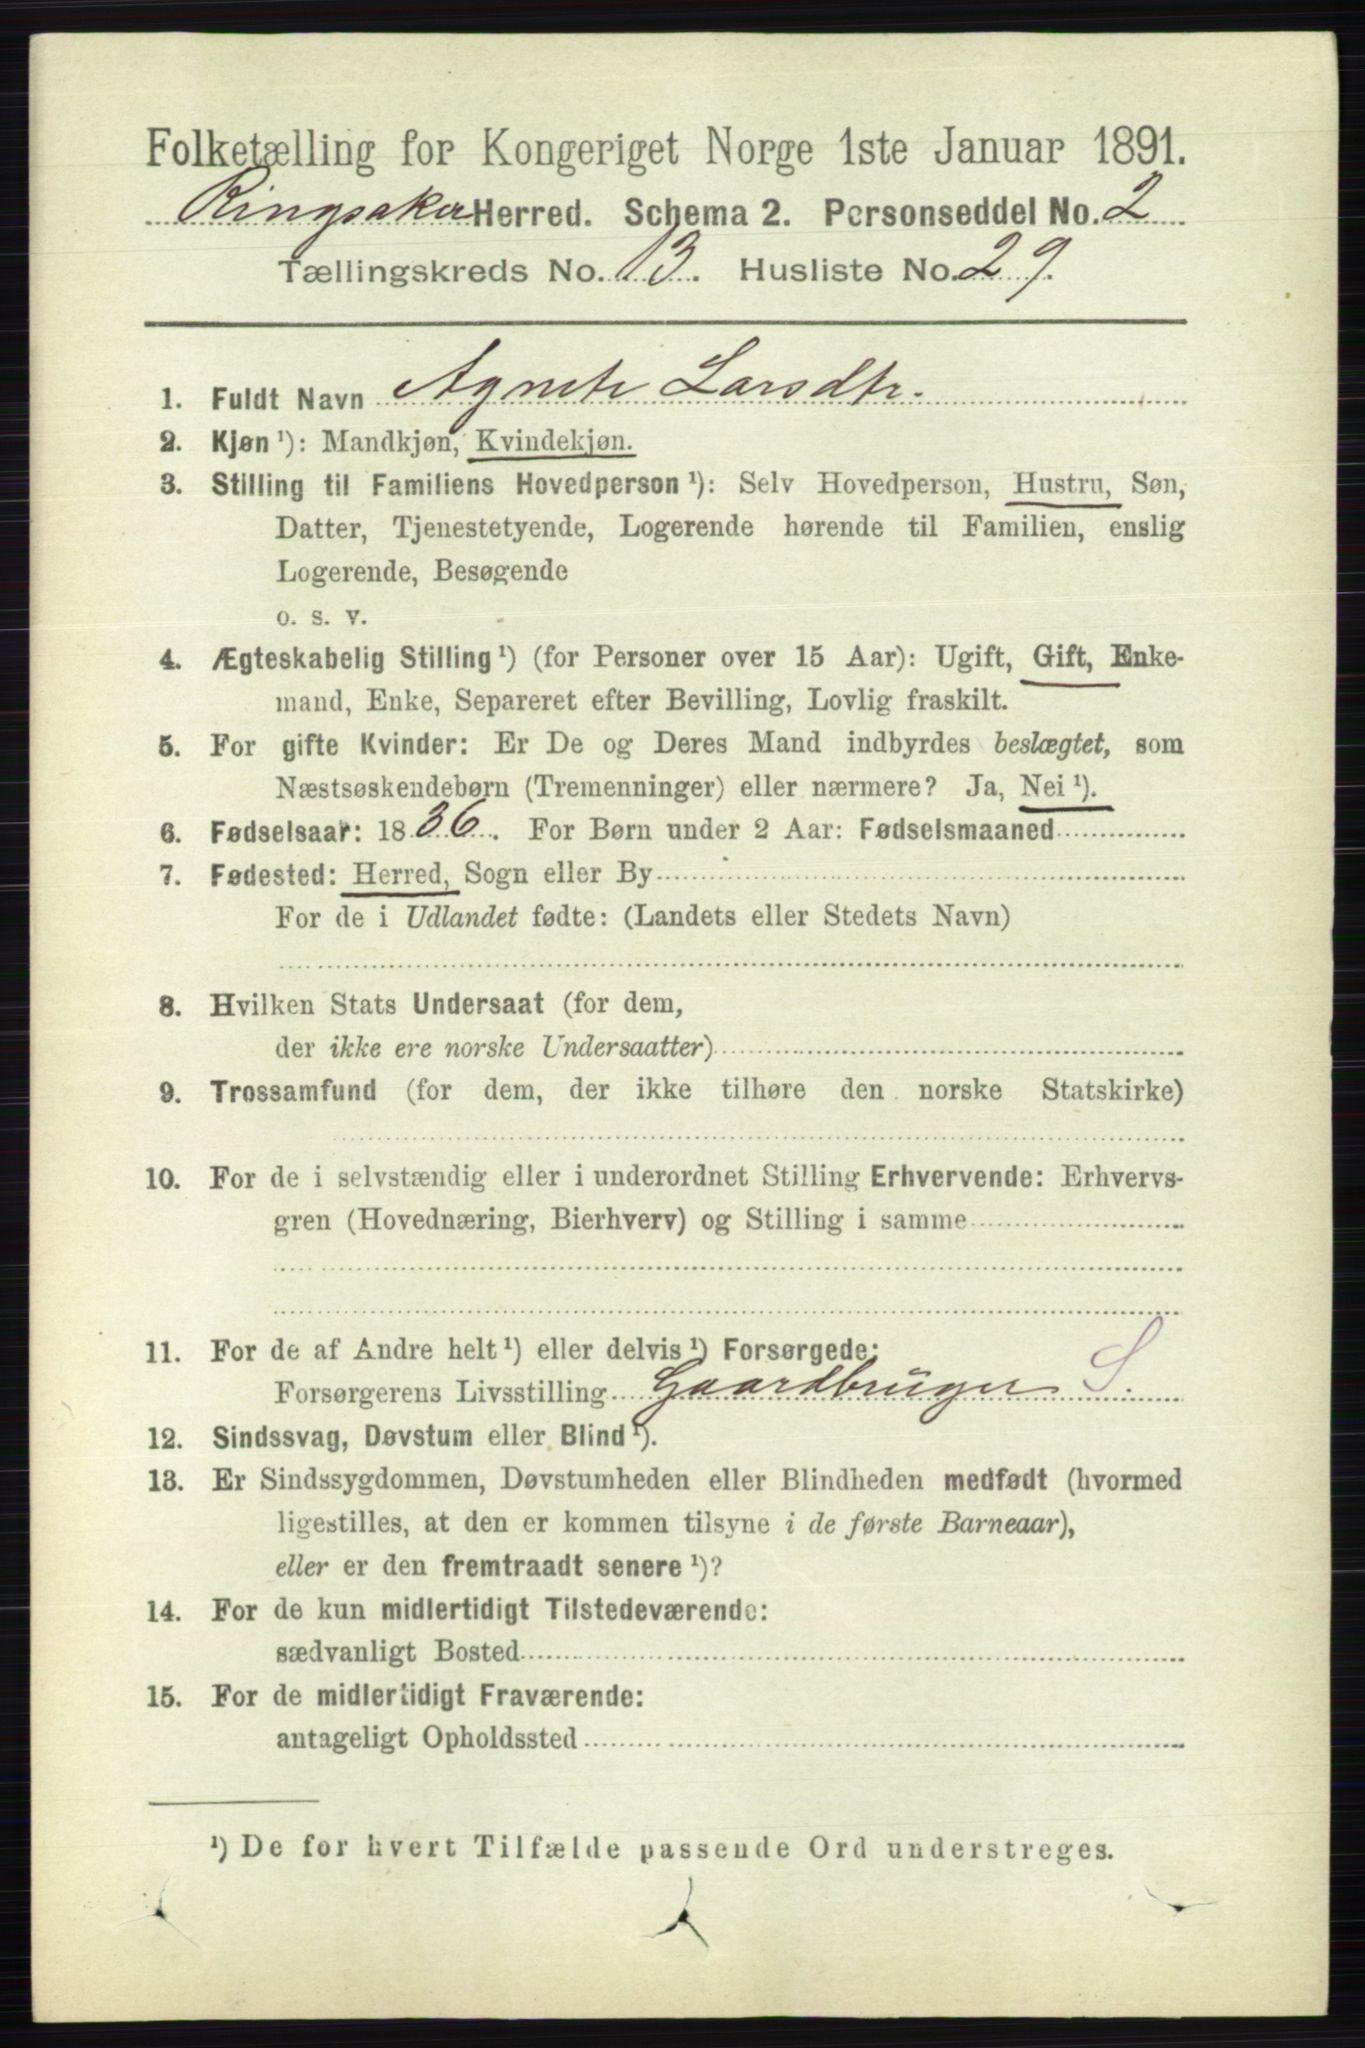 Folketælling for Kongeriget Norge 1ste Januar 1891.
Ringsaker Herred. Schema 2. Personseddel No. 2
Tællingskreds No. 13. Husliste No. 29.
1. Fuldt Navn Agnete Larsdtr.
2. Kjøn ¹): Mandkjøn, Kvindekjøn.
3. Stilling til Familiens Hovedperson ¹): Selv Hovedperson, Hustru, Søn,
Datter, Tjenestetyende, Logerende hørende til Familien, enslig
Logerende, Besøgende
o. s. v.
4. Ægteskabelig Stilling ¹) (for Personer over 15 Aar): Ugift, Gift, Enke-
mand, Enke, Separeret efter Bevilling, Lovlig fraskilt.
5. For gifte Kvinder: Er De og Deres Mand indbyrdes beslægtet, som
Næstsøskendebørn (Tremenninger) eller nærmere? Ja, Nei ¹).
6. Fødselsaar: 1836. For Børn under 2 Aar: Fødselsmaaned
7. Fødested: Herred, Sogn eller By
For de i Udlandet fødte: (Landets eller Stedets Navn)
8. Hvilken Stats Undersaat (for dem,
der ikke ere norske Undersaatter)
9. Trossamfund (for dem, der ikke tilhøre den norske Statskirke)
10. For de i selvstændig eller i underordnet Stilling Erhvervende: Erhvervs-
gren (Hovednæring, Bierhverv) og Stilling i samme
11. For de af Andre helt ¹) eller delvis ¹) Forsørgede:
Forsørgerens Livsstilling Gaardbruger S.
12. Sindssvag, Døvstum eller Blind ¹).
13. Er Sindssygdommen, Døvstumheden eller Blindheden medfødt (hvormed
ligestilles, at den er kommen tilsyne i de første Barneaar),
eller er den fremtraadt senere ¹)?
14. For de kun midlertidigt Tilstedeværende:
sædvanligt Bosted
15. For de midlertidigt Fraværende:
antageligt Opholdssted
¹) De for hvert Tilfælde passende Ord understreges.